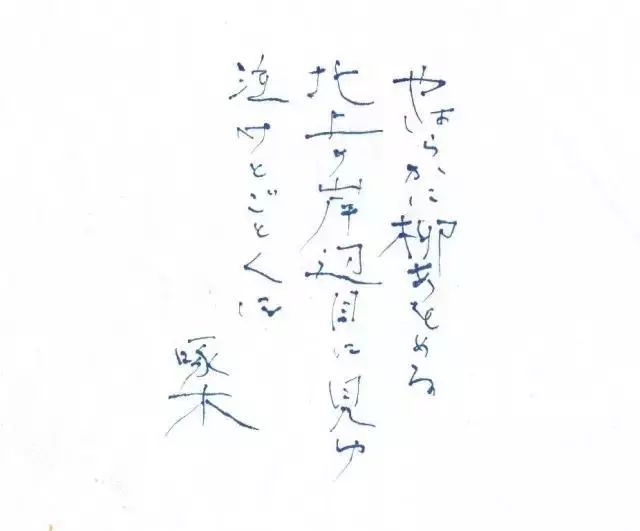 やはらかに柳あをめる
北上の岸辺目に見ゆ
泣けとごとくに
啄木